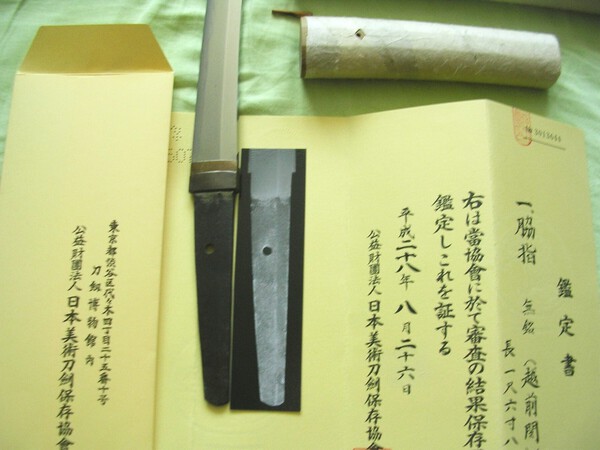 鑑定書
一、脇指 無銘（越前関
長一尺六寸八
右は當協會に於て審査の結果保存
鑑定しこれを証する
平成二十八年八月二十六日
公益財団法人日本美術刀剣保存協會
東京都渋谷区代々木四丁目二十五番十号
刀剣博物館内
公益財団法人日本美術刀剣保存協會